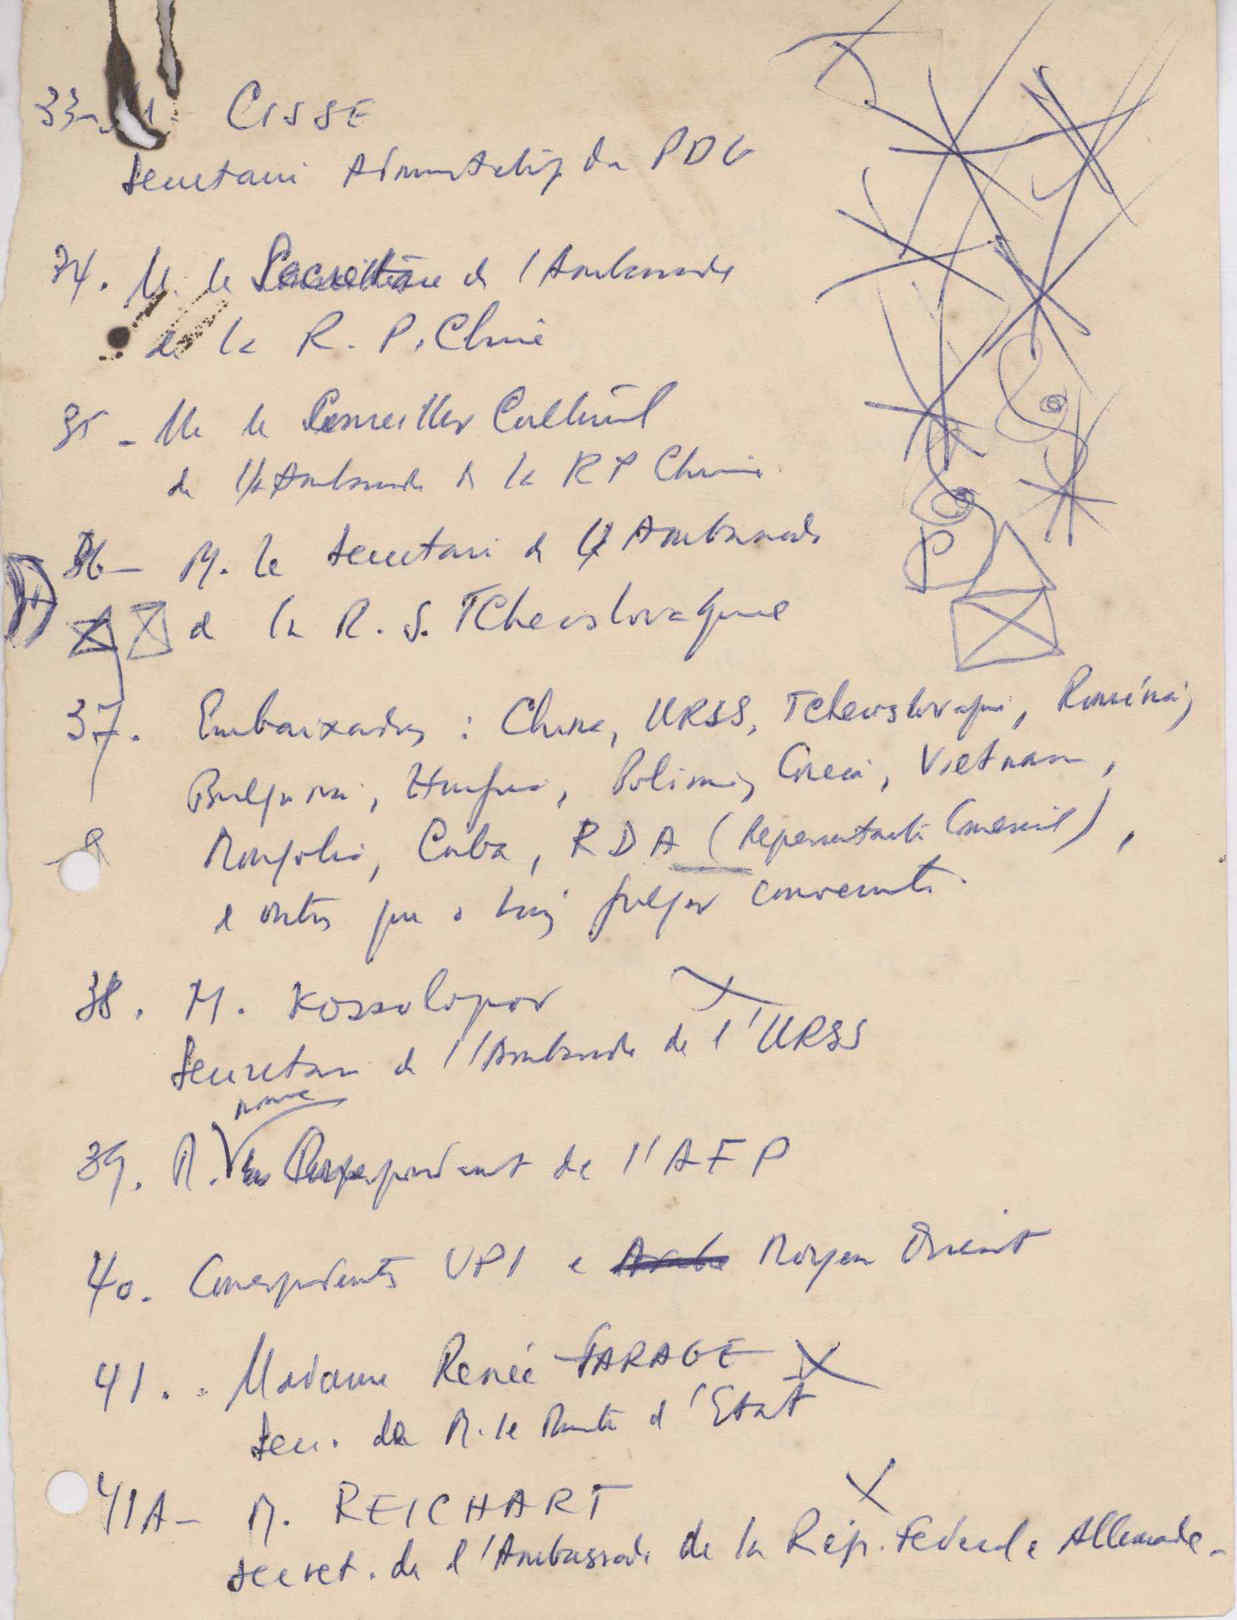 33- M. CISSE
Secretaire Administratif du PDG
34. M. le Secretaire de l'Ambassade
de la R. P. Chine
35 - M. le Conseiller Culturel
de l'Ambassade de la R P Chine
36 - M. le Secretaire de l'Ambassade
de la R. S. Tchecoslovaquie
37. Embaixadas : China, URSS, Tchecoslovaquia, Roménia,
Bulgaria, Hungria, Polonia, Coreia, Vietnam,
Mongolia, Cuba, RDA (Representante Comercial),
e outras que o Luiz julgar conveniente.
38. M. Kossolapov
Secretaire de l'Ambassade de l'URSS
nome
39. M. Correspondant de l'AFP
40. Correspondents UPI e Moyen Orient
41. Madame Renée FARAGE
Secr. de M. le Ministre d'Etat
41A - M. REICHART
Secret. de l'Ambassade de la Rép. Federale Allemande -